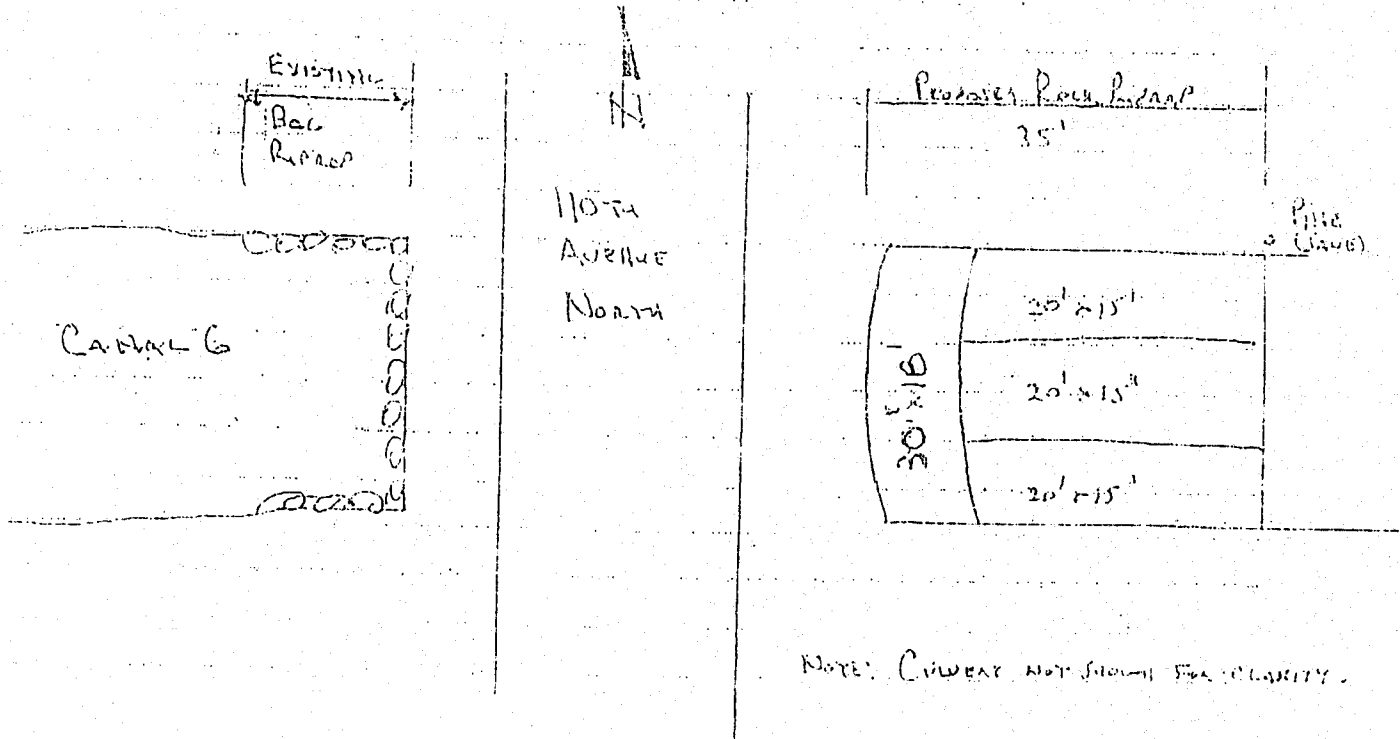 EXISTING
BAG
RIPRAP
N
110TH
AVENUE
NORTH
PROPOSED ROCK RIPRAP
35'
PINE
(SAVE)
CANAL 6
30' x 18'
20' x 15'
20' x 15'
20' x 15'
NOTE: CULVERT NOT SHOWN FOR CLARITY.